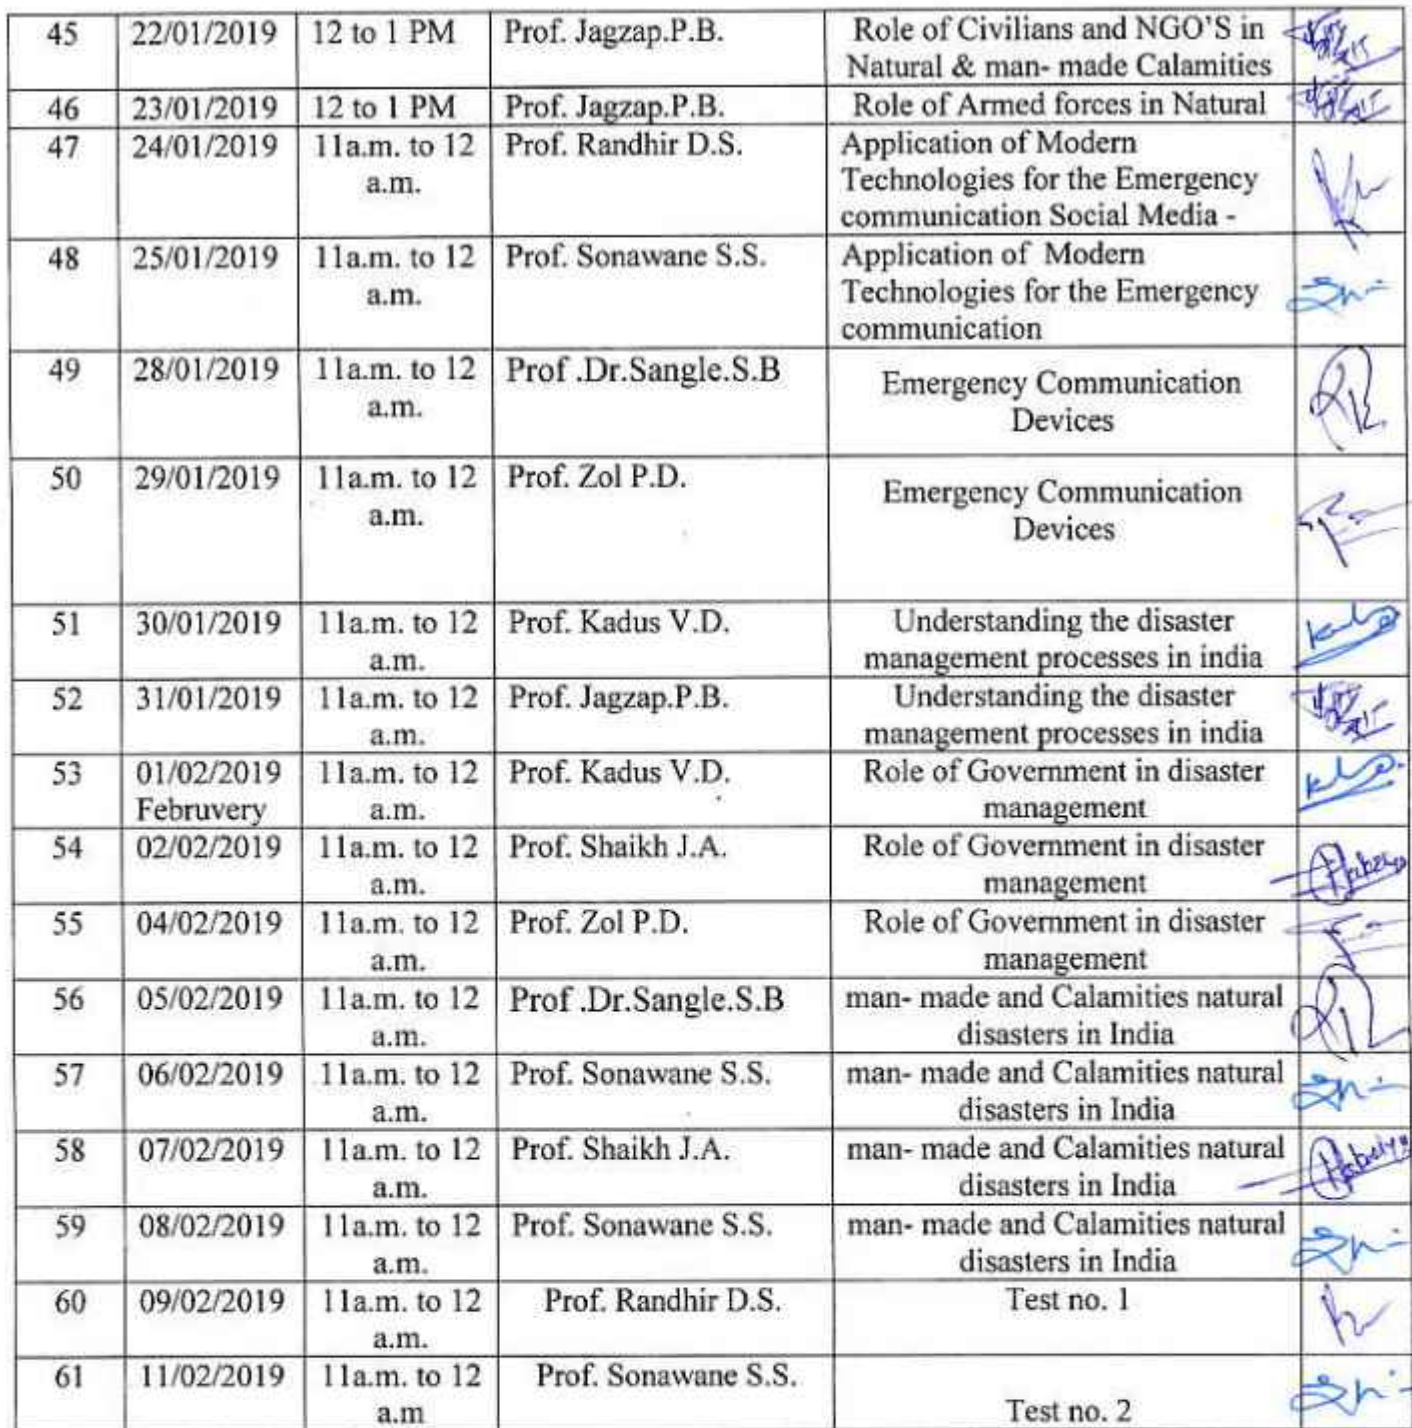 45 22/01/2019 12 to 1 PM Prof. Jagzap.P.B. Role of Civilians and NGO'S in
Natural & man- made Calamities
46 23/01/2019 12 to 1 PM Prof. Jagzap.P.B. Role of Armed forces in Natural
47 24/01/2019 11a.m. to 12 Prof. Randhir D.S. Application of Modern
a.m. Technologies for the Emergency
communication Social Media -
48 25/01/2019 11a.m. to 12 Prof. Sonawane S.S. Application of Modern
a.m. Technologies for the Emergency
communication
49 28/01/2019 11a.m. to 12 Prof .Dr.Sangle.S.B Emergency Communication
a.m. Devices
50 29/01/2019 11a.m. to 12 Prof. Zol P.D. Emergency Communication
a.m. Devices
51 30/01/2019 11a.m. to 12 Prof. Kadus V.D. Understanding the disaster
a.m. management processes in india
52 31/01/2019 11a.m. to 12 Prof. Jagzap.P.B. Understanding the disaster
a.m. management processes in india
53 01/02/2019 11a.m. to 12 Prof. Kadus V.D. Role of Government in disaster
Februvery a.m. management
54 02/02/2019 11a.m. to 12 Prof. Shaikh J.A. Role of Government in disaster
a.m. management
55 04/02/2019 11a.m. to 12 Prof. Zol P.D. Role of Government in disaster
a.m. management
56 05/02/2019 11a.m. to 12 Prof .Dr.Sangle.S.B man- made and Calamities natural
a.m. disasters in India
57 06/02/2019 11a.m. to 12 Prof. Sonawane S.S. man- made and Calamities natural
a.m. disasters in India
58 07/02/2019 11a.m. to 12 Prof. Shaikh J.A. man- made and Calamities natural
a.m. disasters in India
59 08/02/2019 11a.m. to 12 Prof. Sonawane S.S. man- made and Calamities natural
a.m. disasters in India
60 09/02/2019 11a.m. to 12 Prof. Randhir D.S. Test no. 1
a.m.
61 11/02/2019 11a.m. to 12 Prof. Sonawane S.S.
a.m Test no. 2